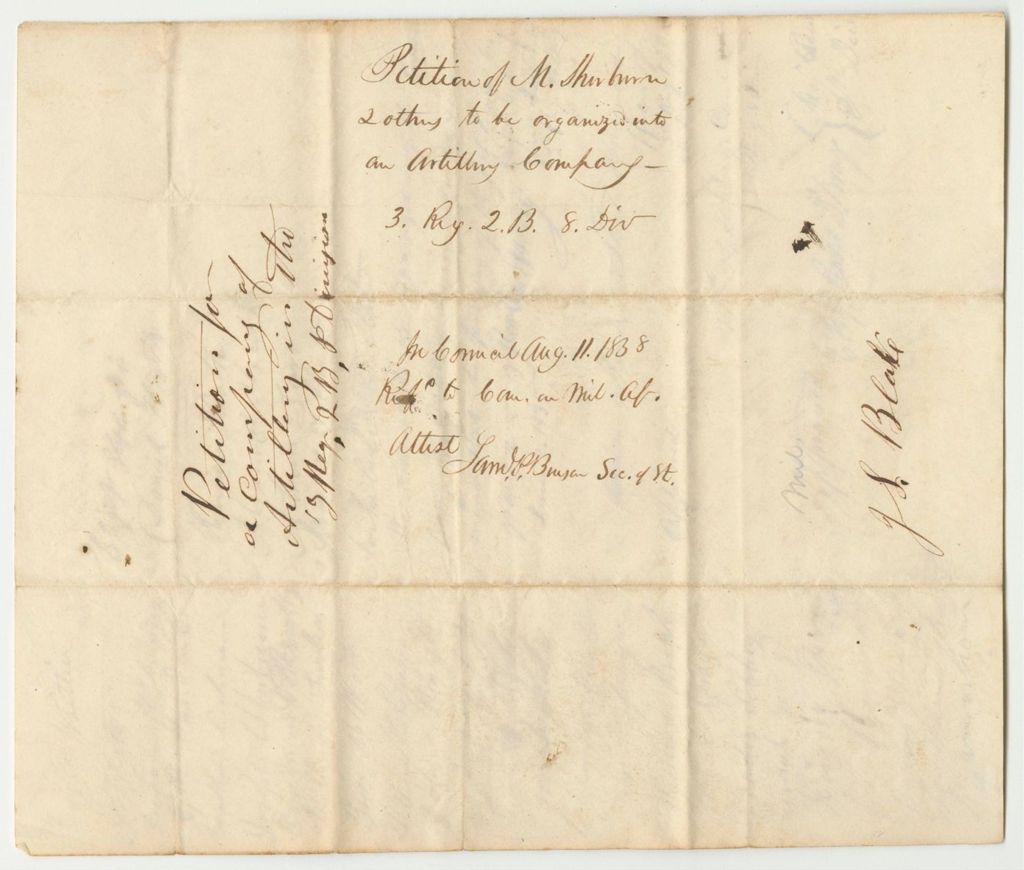 Petition of M. Sherburn
& others to be organized into
an Artillery Company —
3. Reg. 2. B. 8. Div
In Council Aug. 11. 1838
Refd to Com. on Mil. Af.
Attest
Saml. P. Benson Sec. of St.
Petition for
a Company of
Artillery in the
3 Reg, 2 B, 8 Division
J S. Blake
Mil